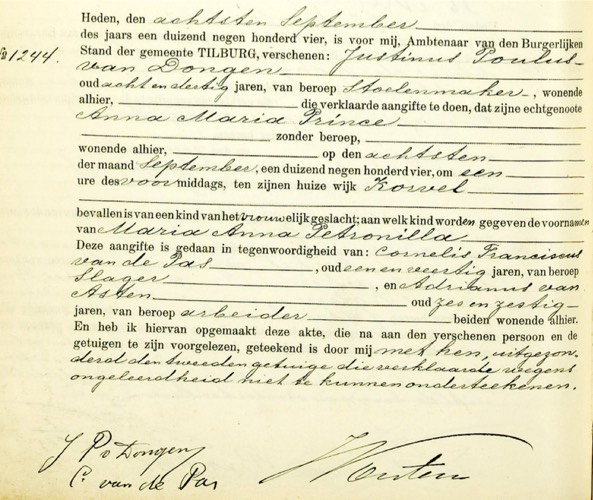 Heden, den achtsten September
des jaars een duizend negen honderd vier, is voor mij, Ambtenaar van den Burgerlijken
No 1244. Stand der gemeente TILBURG, verschenen: Justinus Poulus
van Dongen
oud acht en dertig jaren, van beroep Stoelenmaker, wonende
alhier, die verklaarde aangifte te doen, dat zijne echtgenoote
Anna Maria Prince
zonder beroep,
wonende alhier, op den achtsten
der maand September, een duizend negen honderd vier, om een
ure des voormiddags, ten zijnen huize wijk Korvel
bevallen is van een kind van het vrouwelijk geslacht; aan welk kind worden gegeven de voornamen
van Maria Anna Petronilla
Deze aangifte is gedaan in tegenwoordigheid van: Cornelis Franciscus
van de Pas, oud een en veertig jaren, van beroep
Slager, en Adrianus van
Asten oud zes en zestig
jaren, van beroep arbeider beiden wonende alhier.
En heb ik hiervan opgemaakt deze akte, die na aan den verschenen persoon en de
getuigen te zijn voorgelezen, geteekend is door mij met hen, uitgezon-
derd den tweeden getuige die verklaarde wegens
ongeleerdheid niet te kunnen onderteekenen.
J P v Dongen
C. van de Pas